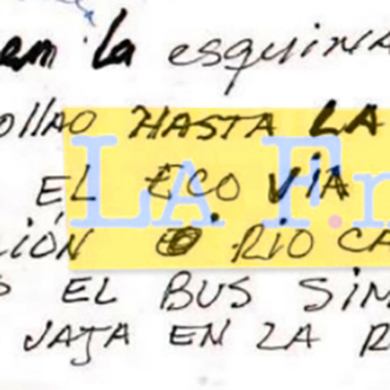 em la esquina
ollao HASTA LA
EL ECO VÍA
LA Fr
IÓN O RIO CA
EL BUS SIM
JAJA EN LA R